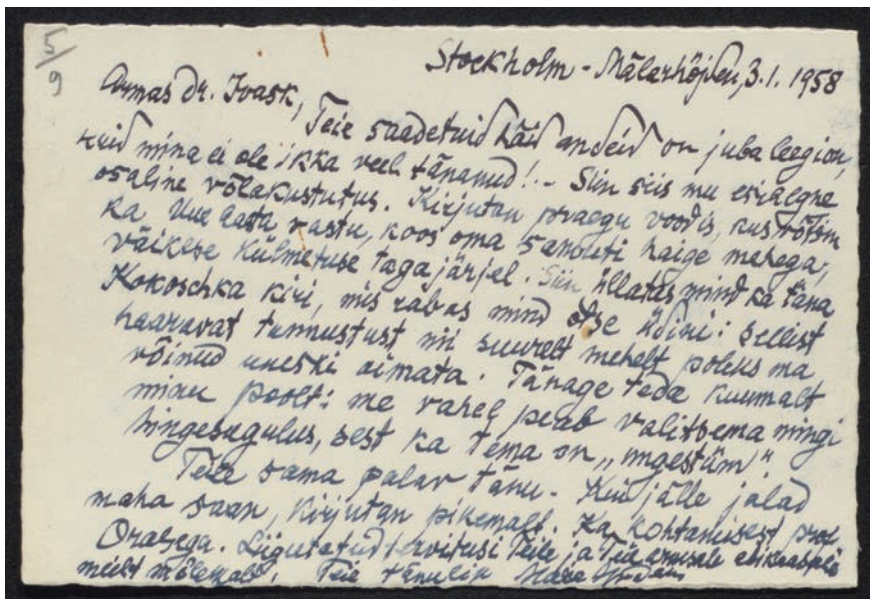 5/9
Stockholm - Mälarhöjden, 3.1.1958
Armas Dr. Ivask,
Teie saadetuid häid andeid on juba leegion,
kuid mina ei ole ikka veel tänanud! - Siin siis mu esiaegne
osaline võlakustutus. Kirjutan praegu voodis, kus võtsin
ka Uue Aasta vastu, koos oma samuti haige mehega,
väikese külmetuse tagajärjel. Siin üllatas mind ka täna
Kokoschka kiri, mis rabas mind otse üdini: sellist
haaravat tunnustust nii suurelt mehelt poleks ma
võinud uneski aimata. Tänage teda kuumalt
minu poolt: me vahel peab valitsema mingi
hingesugulus, sest ka tema on „ungestüm"
Teile sama palav tänu. Kui jälle jalad
maha saan, kirjutan pikemalt. Ka kohtamisest prof.
Orasega. Liigutatud tervitusi Teile ja Teie armsale abikaasale
meilt mõlemalt. Teie tänulik Marie Under